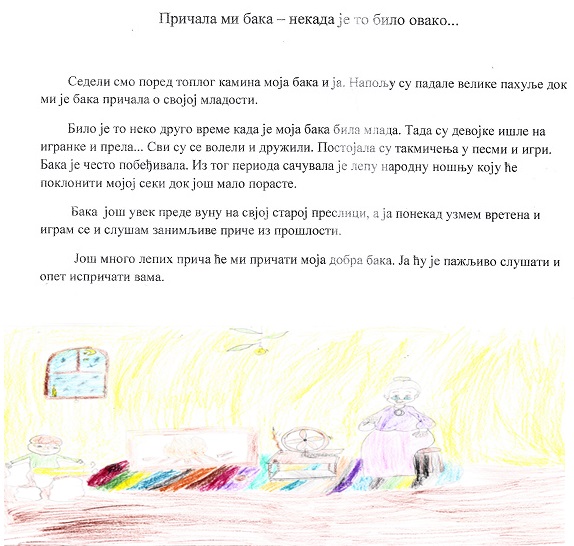 Причала ми бака – некада је то било овако...
Седели смо поред топлог камина моја бака и ја. Напољу су падале велике пахуље док
ми је бака причала о својој младости.
Било је то неко друго време када је моја бака била млада. Тада су девојке ишле на
игранке и прела... Сви су се волели и дружили. Постојала су такмичења у песми и игри.
Бака је често побеђивала. Из тог периода сачувала је лепу народну ношњу коју ће
поклонити мојој секи док још мало порасте.
Бака још увек преде вуну на свјој старој преслици, а ја понекад узмем вретена и
играм се и слушам занимљиве приче из прошлости.
Још много лепих прича ће ми причати моја добра бака. Ја ћу је пажљиво слушати и
опет испричати вама.